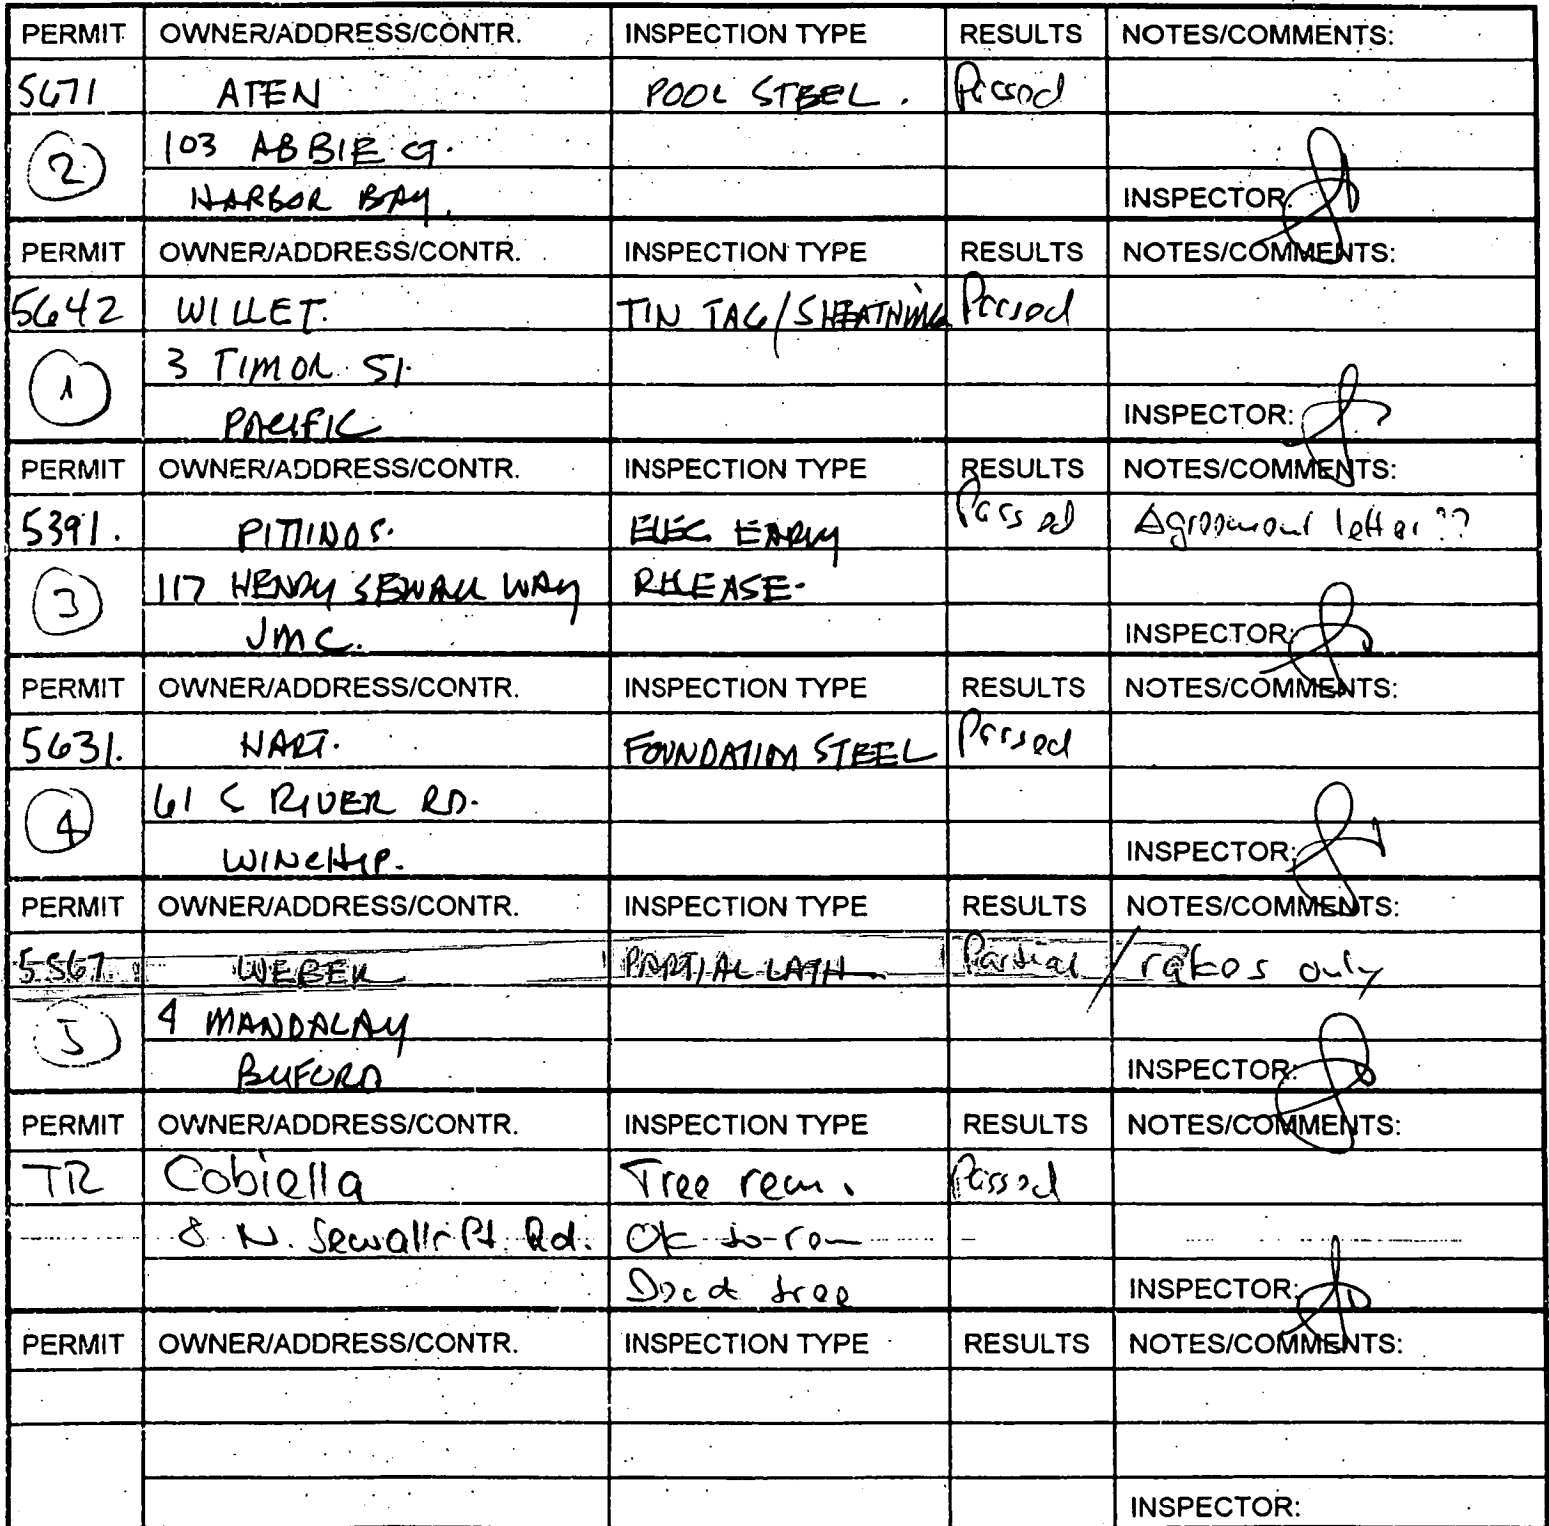 PERMIT OWNER/ADDRESS/CONTR. INSPECTION TYPE RESULTS NOTES/COMMENTS:
5671 ATEN POOL STEEL. Passed
2 103 ABBIE CT.
HARBOR BAY. INSPECTOR:
PERMIT OWNER/ADDRESS/CONTR. INSPECTION TYPE RESULTS NOTES/COMMENTS:
5642 WILLET. TIN TAG/SHEATHING Passed
1 3 TIMOR ST.
PACIFIC INSPECTOR:
PERMIT OWNER/ADDRESS/CONTR. INSPECTION TYPE RESULTS NOTES/COMMENTS:
5391. PITTINOS. ELEC. EARLY Passed Agreement letter??
3 117 HENRY SEWALL WAY RELEASE.
JMC. INSPECTOR:
PERMIT OWNER/ADDRESS/CONTR. INSPECTION TYPE RESULTS NOTES/COMMENTS:
5631. HART. FOUNDATION STEEL Passed
4 61 S RIVER RD.
WINCHIP. INSPECTOR:
PERMIT OWNER/ADDRESS/CONTR. INSPECTION TYPE RESULTS NOTES/COMMENTS:
5567 WEBER PARTIAL LATH Partial / rakes only
5 4 MANDALAY
BUFORD INSPECTOR:
PERMIT OWNER/ADDRESS/CONTR. INSPECTION TYPE RESULTS NOTES/COMMENTS:
TR Cobiella Tree rem. Passed
8 N. Sewalls Pt. Rd. Ok to rem
Dead tree INSPECTOR:
PERMIT OWNER/ADDRESS/CONTR. INSPECTION TYPE RESULTS NOTES/COMMENTS:
INSPECTOR: